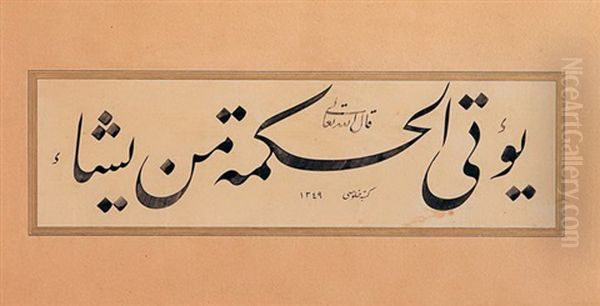 قال الله تعالى
يؤتى الحكمة من يشاء
كتبه خلوصى ١٣٤٩
NiceArtGallery.com